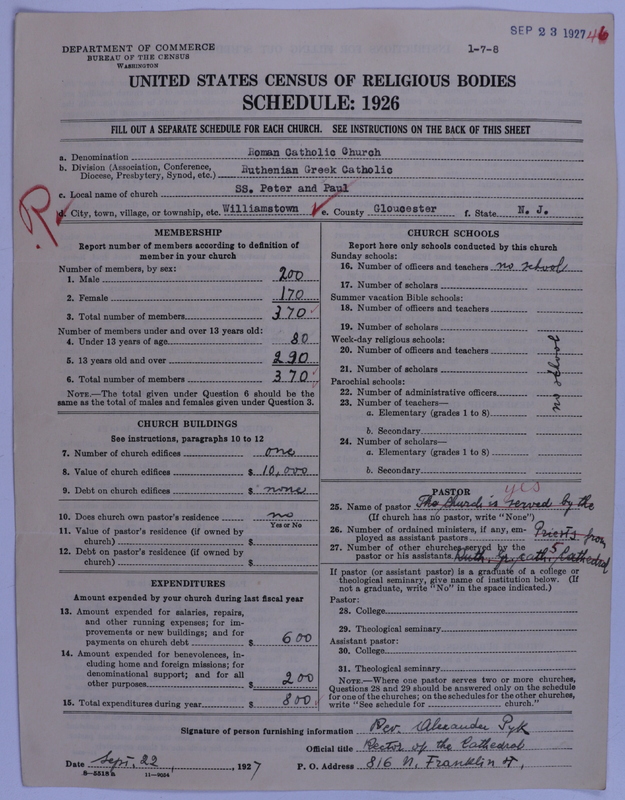 SEP 23 1927 46
1-7-8
DEPARTMENT OF COMMERCE
BUREAU OF THE CENSUS
WASHINGTON
UNITED STATES CENSUS OF RELIGIOUS BODIES
SCHEDULE: 1926
FILL OUT A SEPARATE SCHEDULE FOR EACH CHURCH. SEE INSTRUCTIONS ON THE BACK OF THIS SHEET
a. Denomination Roman Catholic Church
b. Division (Association, Conference, Diocese, Presbytery, Synod, etc.) Ruthenian Greek Catholic
c. Local name of church SS. Peter and Paul
R
d. City, town, village, or township, etc. Williamstown e. County Gloucester f. State N. J.
MEMBERSHIP
Report number of members according to definition of
member in your church
Number of members, by sex:
1. Male 200
2. Female 170
3. Total number of members 370
Number of members under and over 13 years old:
4. Under 13 years of age 80
5. 13 years old and over 290
6. Total number of members 370
NOTE.—The total given under Question 6 should be the
same as the total of males and females given under Question 3.
CHURCH BUILDINGS
See instructions, paragraphs 10 to 12
7. Number of church edifices one
8. Value of church edifices $ 10,000
9. Debt on church edifices $ none
10. Does church own pastor's residence no
Yes or No
11. Value of pastor's residence (if owned by
church) $
12. Debt on pastor's residence (if owned by
church) $
EXPENDITURES
Amount expended by your church during last fiscal year
13. Amount expended for salaries, repairs,
and other running expenses; for im-
provements or new buildings; and for
payments on church debt $ 600
14. Amount expended for benevolences, in-
cluding home and foreign missions; for
denominational support; and for all
other purposes $ 200
15. Total expenditures during year $ 800
CHURCH SCHOOLS
Report here only schools conducted by this church
Sunday schools:
16. Number of officers and teachers no school
17. Number of scholars
Summer vacation Bible schools:
18. Number of officers and teachers
19. Number of scholars
Week-day religious schools:
20. Number of officers and teachers
21. Number of scholars
no school
Parochial schools:
22. Number of administrative officers
23. Number of teachers—
a. Elementary (grades 1 to 8)
b. Secondary
24. Number of scholars—
a. Elementary (grades 1 to 8)
b. Secondary
PASTOR yes
25. Name of pastor The church is served by the
(If church has no pastor, write "None")
26. Number of ordained ministers, if any, em-
ployed as assistant pastors Priests from
27. Number of other churches served by the
pastor or his assistants Ruth. Gr. Cath. 5 Cathedral
If pastor (or assistant pastor) is a graduate of a college or
theological seminary, give name of institution below. (If
not a graduate, write "No" in the space indicated.)
Pastor:
28. College
29. Theological seminary
Assistant pastor:
30. College
31. Theological seminary
NOTE.—Where one pastor serves two or more churches,
Questions 28 and 29 should be answered only on the schedule
for one of the churches; on the schedules for the other churches,
write "See schedule for church."
Signature of person furnishing information Rev. Alexander Pyk
Official title Rector of the Cathedral
Date Sept. 22, 1927 P. O. Address 816 N. Franklin st,
8-5516 a 11-9034